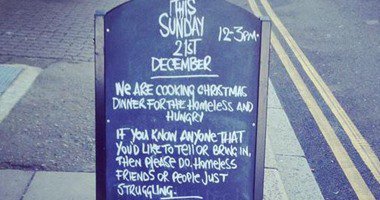 THIS
SUNDAY 12-3PM.
21ST
DECEMBER
WE ARE COOKING CHRISTMAS
DINNER FOR THE HOMELESS AND
HUNGRY
IF YOU KNOW ANYONE THAT
YOU'D LIKE TO TELL OR BRING IN,
THEN PLEASE DO. HOMELESS
FRIENDS OR PEOPLE JUST
STRUGGLING.